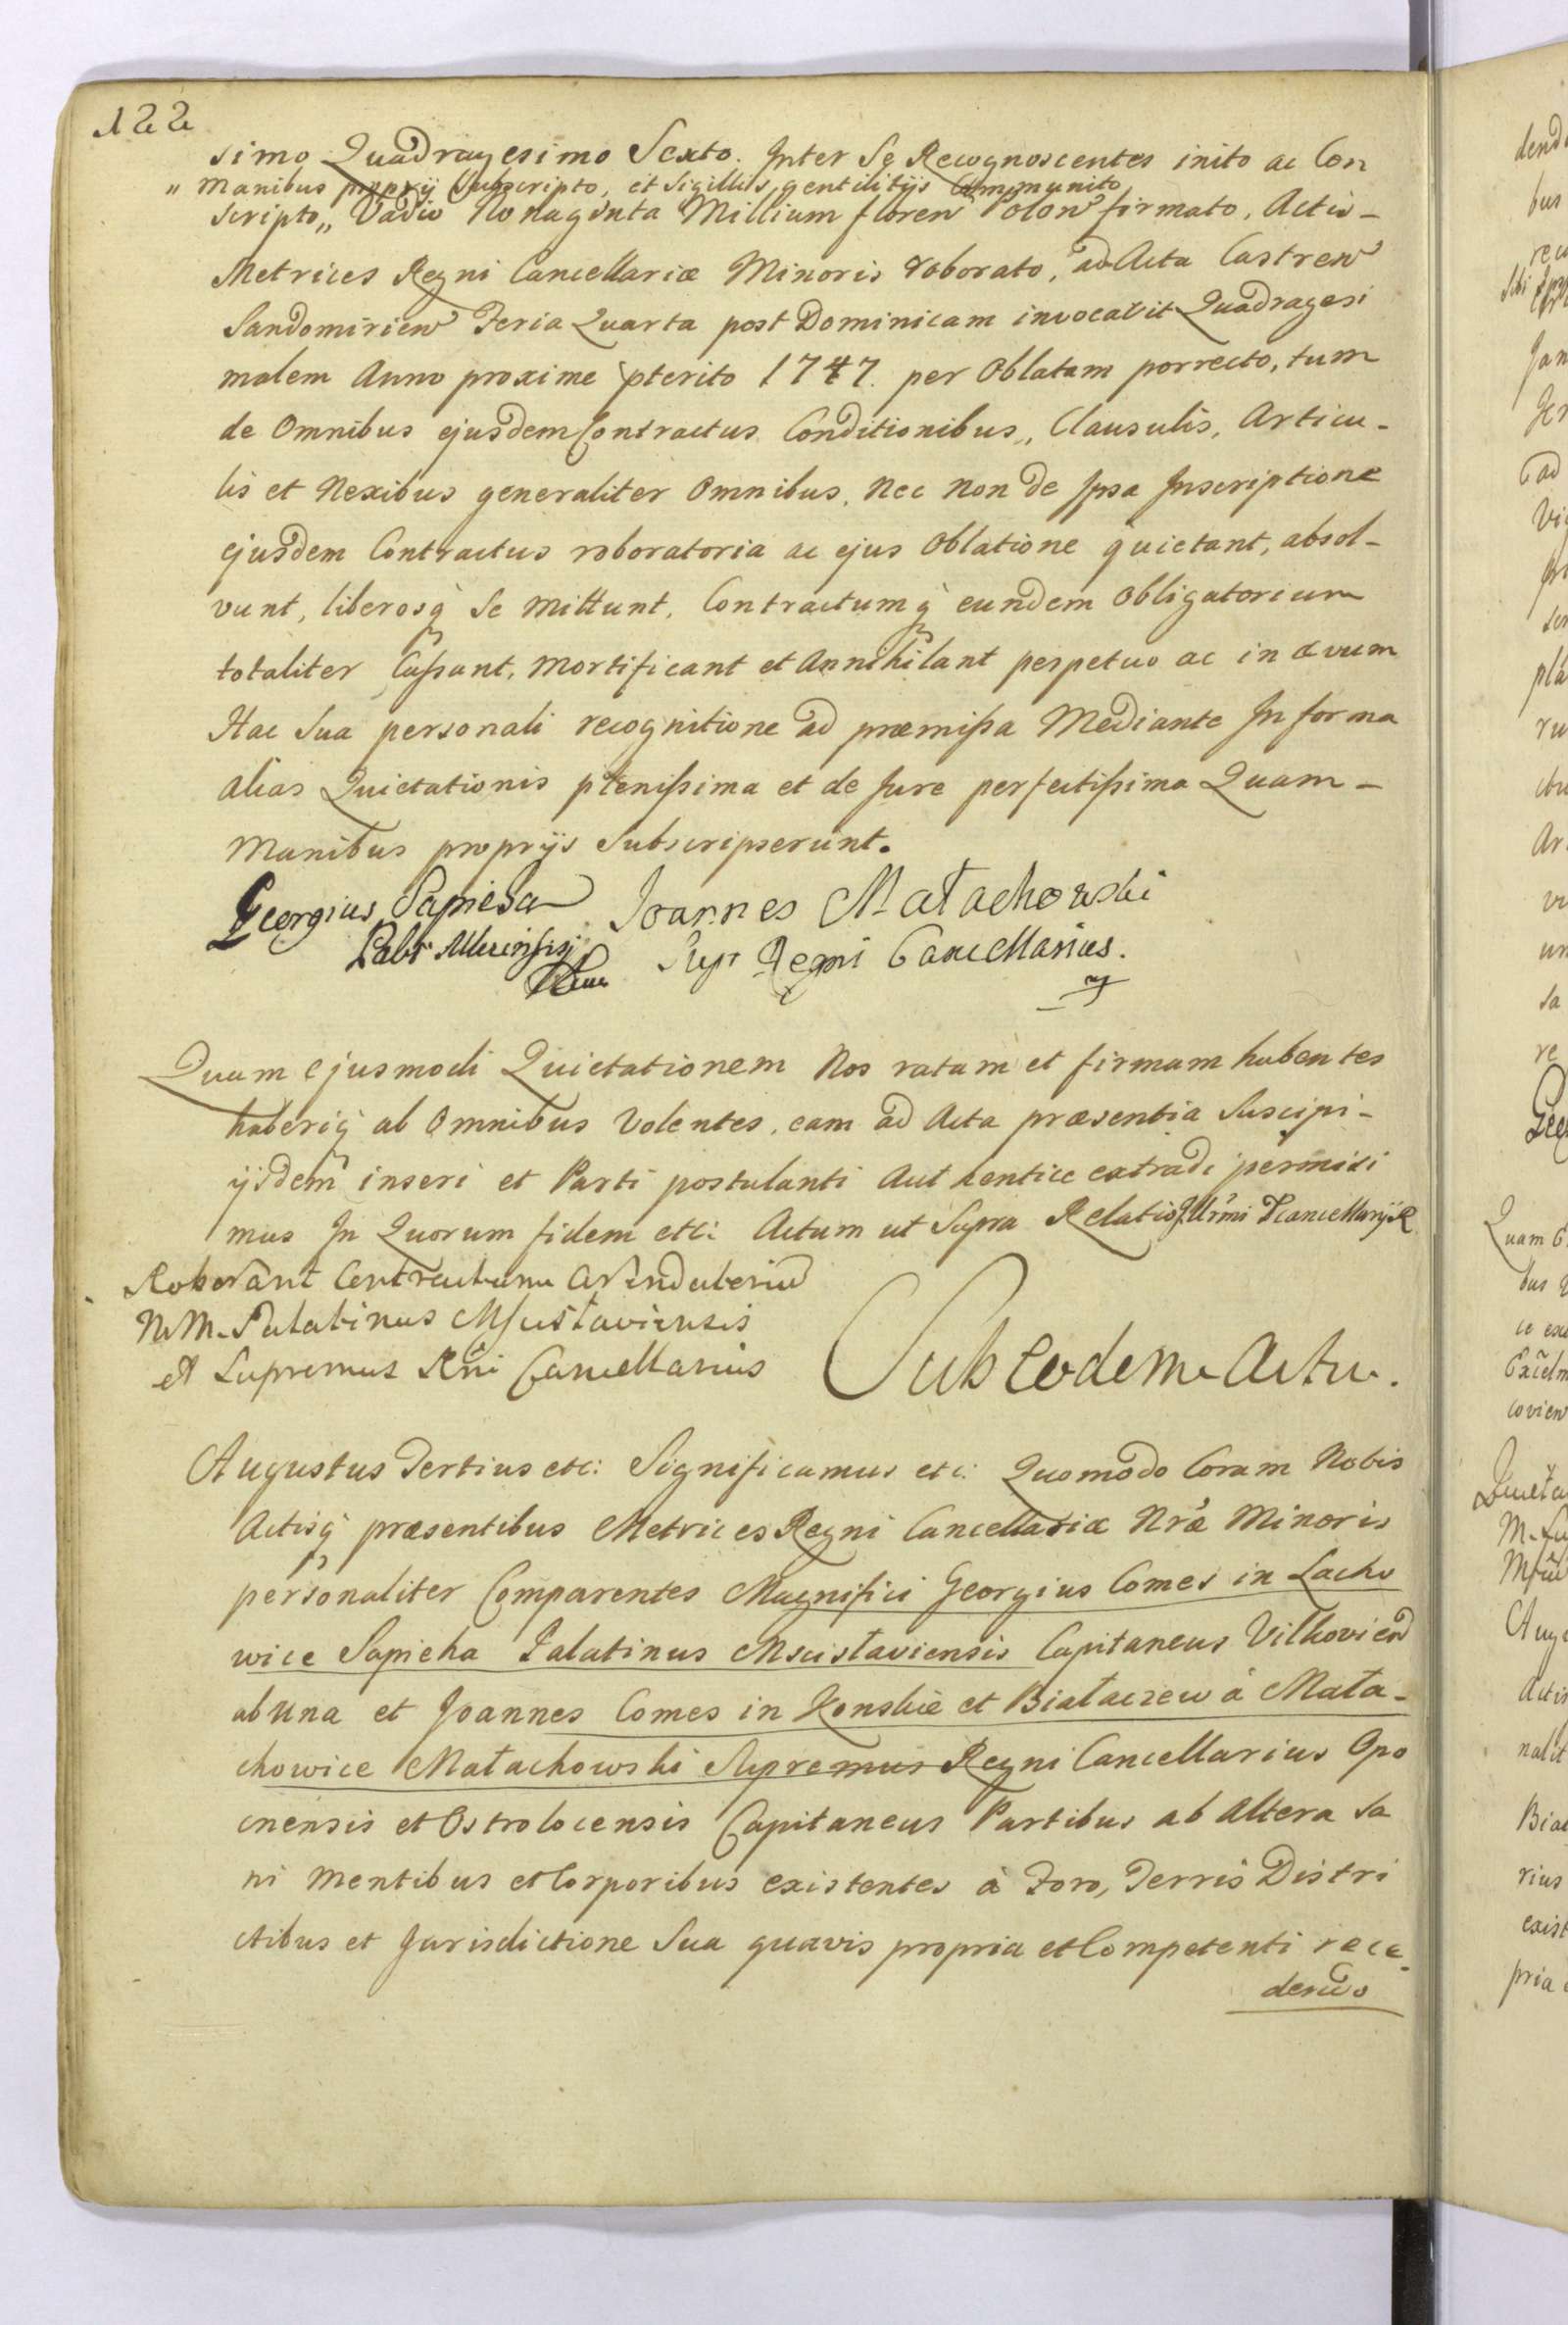 122
simo Quadragesimo Sexto. Inter Se Recognoscentes inito ac Con
" Manibus proprÿ Subscripto, et Sigillis gentilitÿs Communito
scripto,, Vadio Nonaginta Millium floren Polon firmato, Actis-
Metrices Regni Cancellariæ Minoris roborato, ad Acta Castren
Sandomirien Feria Quarta post Dominicam invocavit Quadragesi
malem Anno proxime pterito 1747. per Oblatam porrecto, tum
de Omnibus ejusdem Contractus Conditionibus, Clausulis, Articu-
lis et Nexibus generaliter Omnibus, Nec Non de Ipsa Inscriptione
ejusdem Contractus roboratoria ac ejus Oblatione quietant, absol-
vunt, liberosq̀ Se Mittunt, Contractumq̀ eundem Obligatorium
totaliter Caſsant, Mortificant et Annihilant perpetuo ac in ævum
Hac Sua personali recognitione ad præmiſsa Mediante In forma
alias Quietationis pleniſsima et de Jure perfectiſsima Quam-
Manibus proprÿs Subscripserunt.
Georgius Sapieha Joannes Małachowski
Sup Regni Cancellarius.
Quam ejusmodi Quietationem Nos ratam et firmam habentes
haberiq̀ ab Omnibus Volentes, eam ad Acta præsentia Suscipi-
ÿsdem inseri et Parti postulanti Authentice extradi permisi
mus In Quorum fidem etc: Actum ut Supra Relatio Cancellarÿ R
Roborant Contractum Arendatoriu
MM. Palatinus Mscisłaviensis
et Supremus Rni Cancellarius
Sub Eodem Actu.
Augustus Tertius etc: Significamus etc: Quomodo Coram Nobis
Actisq̀ præsentibus Metrices Regni Cancellariæ Nræ Minoris
personaliter Comparentes Magnifici Georgius Comes in Lacho
wice Sapieha Palatinus Mscisłaviensis Capitaneus Vilkovien
ab Una et Joannes Comes in Konskie et Białaczew à Mała-
chowice Małachowski Supremus Regni Cancellarius Opo
cnensis et Ostrolocensis Capitaneus Partibus ab Altera Sa
ni Mentibus et Corporibus existentes à Foro, Terris Distri
ctibus et Jurisdictione Sua quavis propria et Competenti rece-
dendo